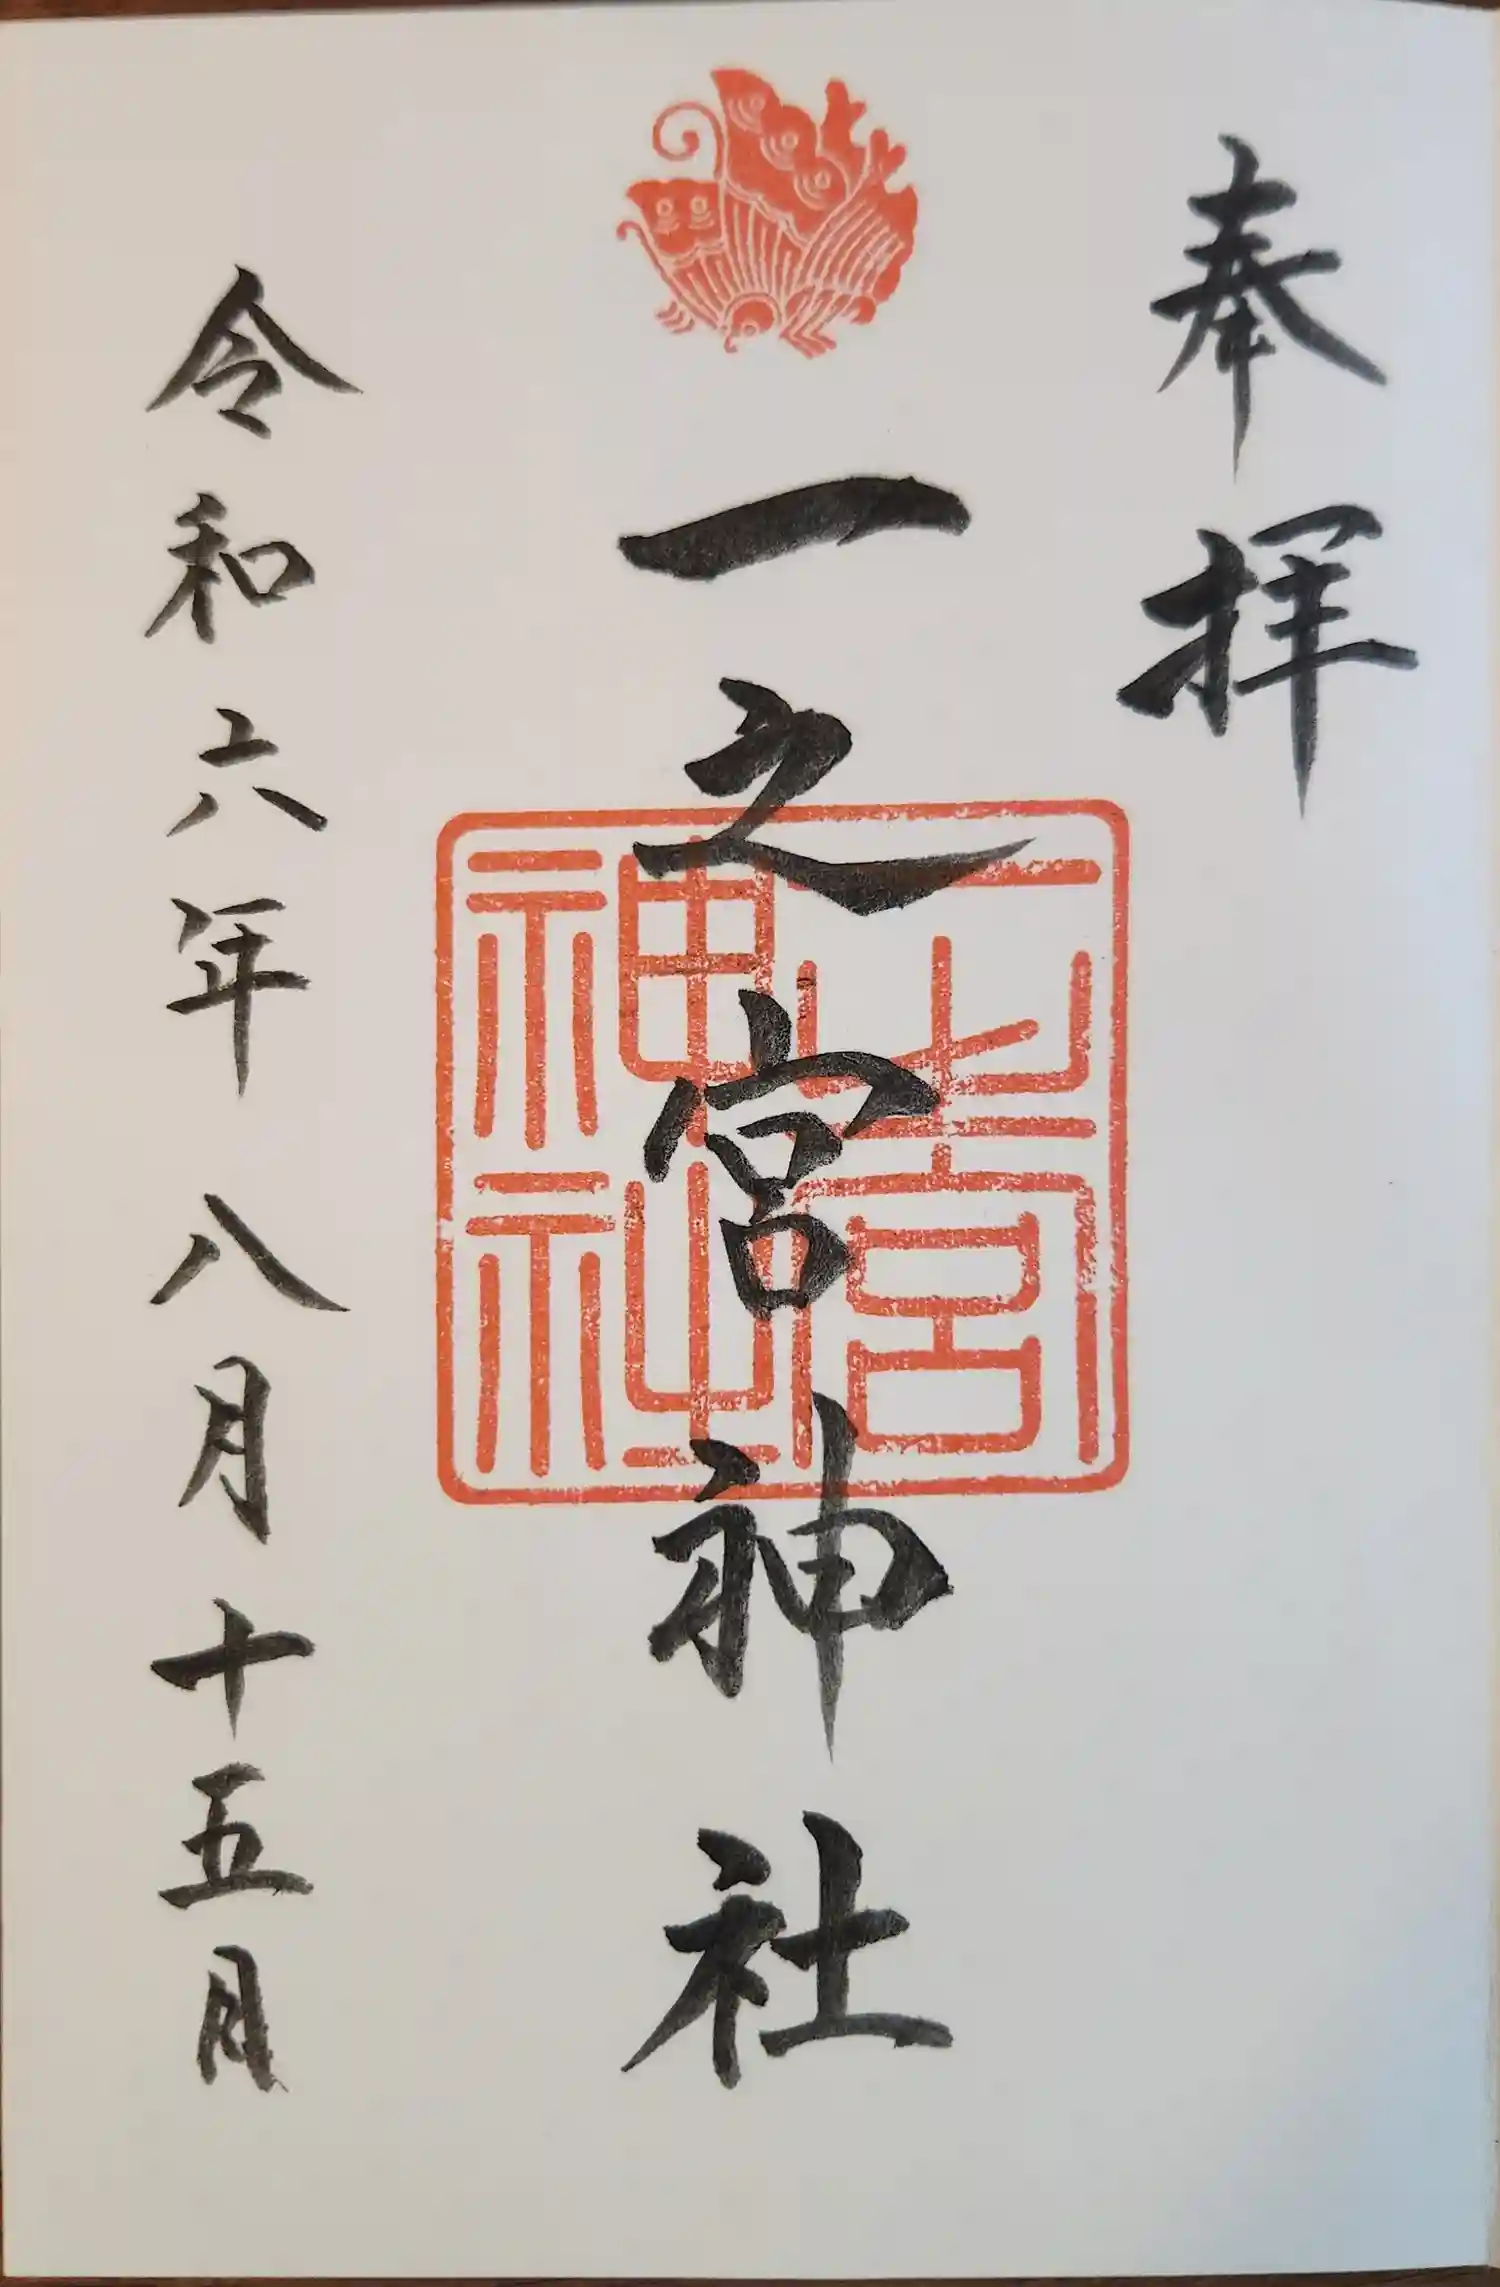 奉拝
一之宮神社
一之宮
神社
令和六年八月十五日